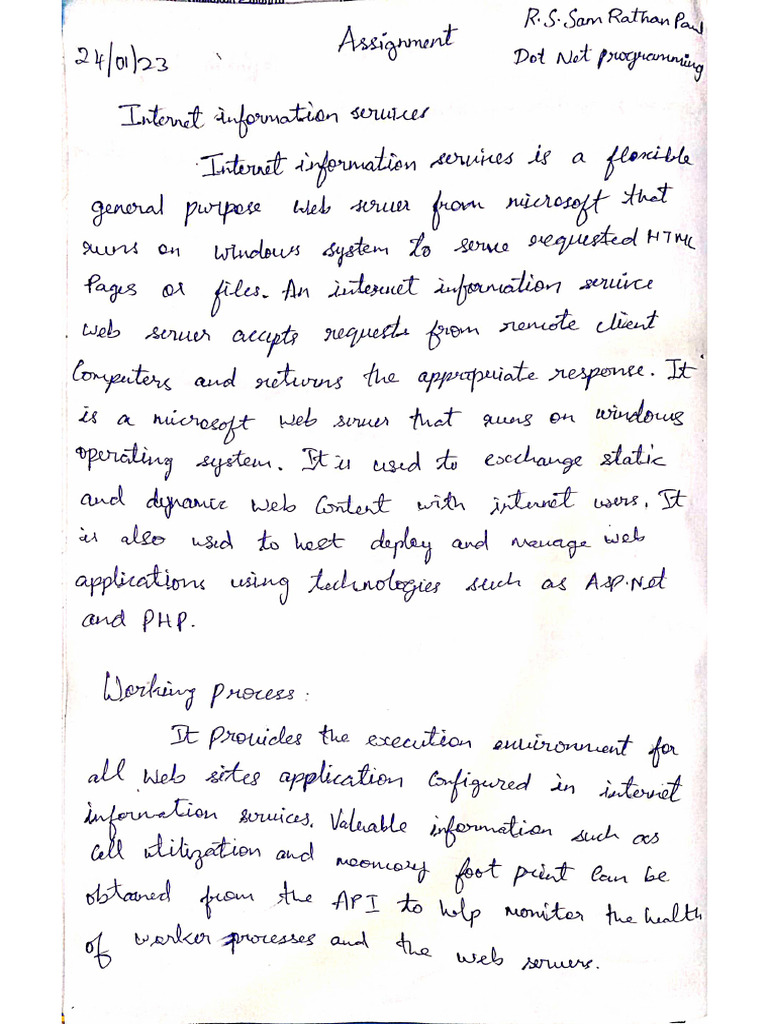 R.S. Sam Rathan Paul
Assignment
24/01/23
Dot Net programming
Internet information services
Internet information services is a flexible
general purpose web server from microsoft that
runs on windows system to serve requested HTML
Pages or files. An internet information service
web server accepts requests from remote client
Computers and returns the appropriate response. It
is a microsoft web server that runs on windows
operating system. It is used to exchange static
and dynamic web Content with internet users. It
is also used to host deploy and manage web
applications using technologies such as Asp.Net
and PHP.
Working process:
It provides the execution environment for
all web sites application configured in internet
information services. Valuable information such as
cell utilization and memory foot print can be
obtained from the API to help monitor the health
of worker processes and the web servers.